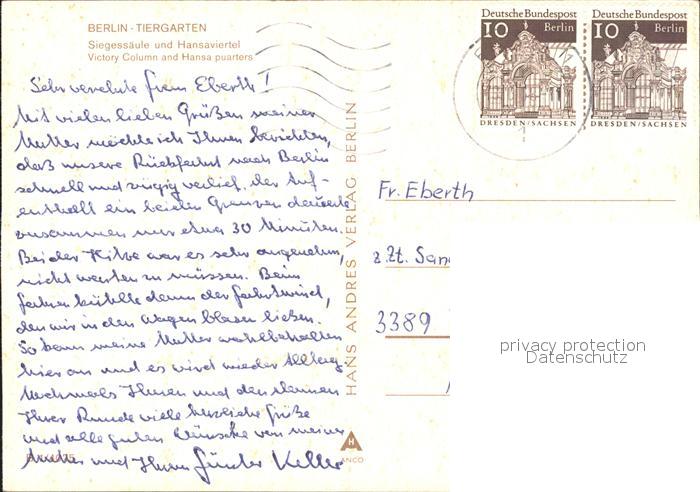 BERLIN - TIERGARTEN
Siegessäule und Hansaviertel
Victory Column and Hansa puarters
Sehr verehrte Frau Eberth!
Mit vielen lieben Grüßen meiner
Mutter möchte ich Ihnen berichten,
daß unsere Rückfahrt nach Berlin
schnell und zügig verlief. der Auf-
enthalt an beiden Grenzen dauerte
zusammen nur etwa 30 Minuten.
Bei der Hitze war es sehr angenehm,
nicht warten zu müssen. Beim
Fahren kühlte dann der Fahrtwind,
den wir in den Wagen blasen ließen.
So kam meine Mutter wohlbehalten
hier an und es wird wieder Alltag.
Nochmals Ihnen und den Damen
Ihrer Runde viele herzliche Grüße
und alle guten Wünsche von meiner
Mutter und Ihrem Günter Keller
HANS ANDRES VERLAG BERLIN
H
ANCO
Deutsche Bundespost
10 Berlin
DRESDEN/SACHSEN
Deutsche Bundespost
10 Berlin
DRESDEN/SACHSEN
1
Fr. Eberth
z.Zt. San
3389
privacy protection
Datenschutz